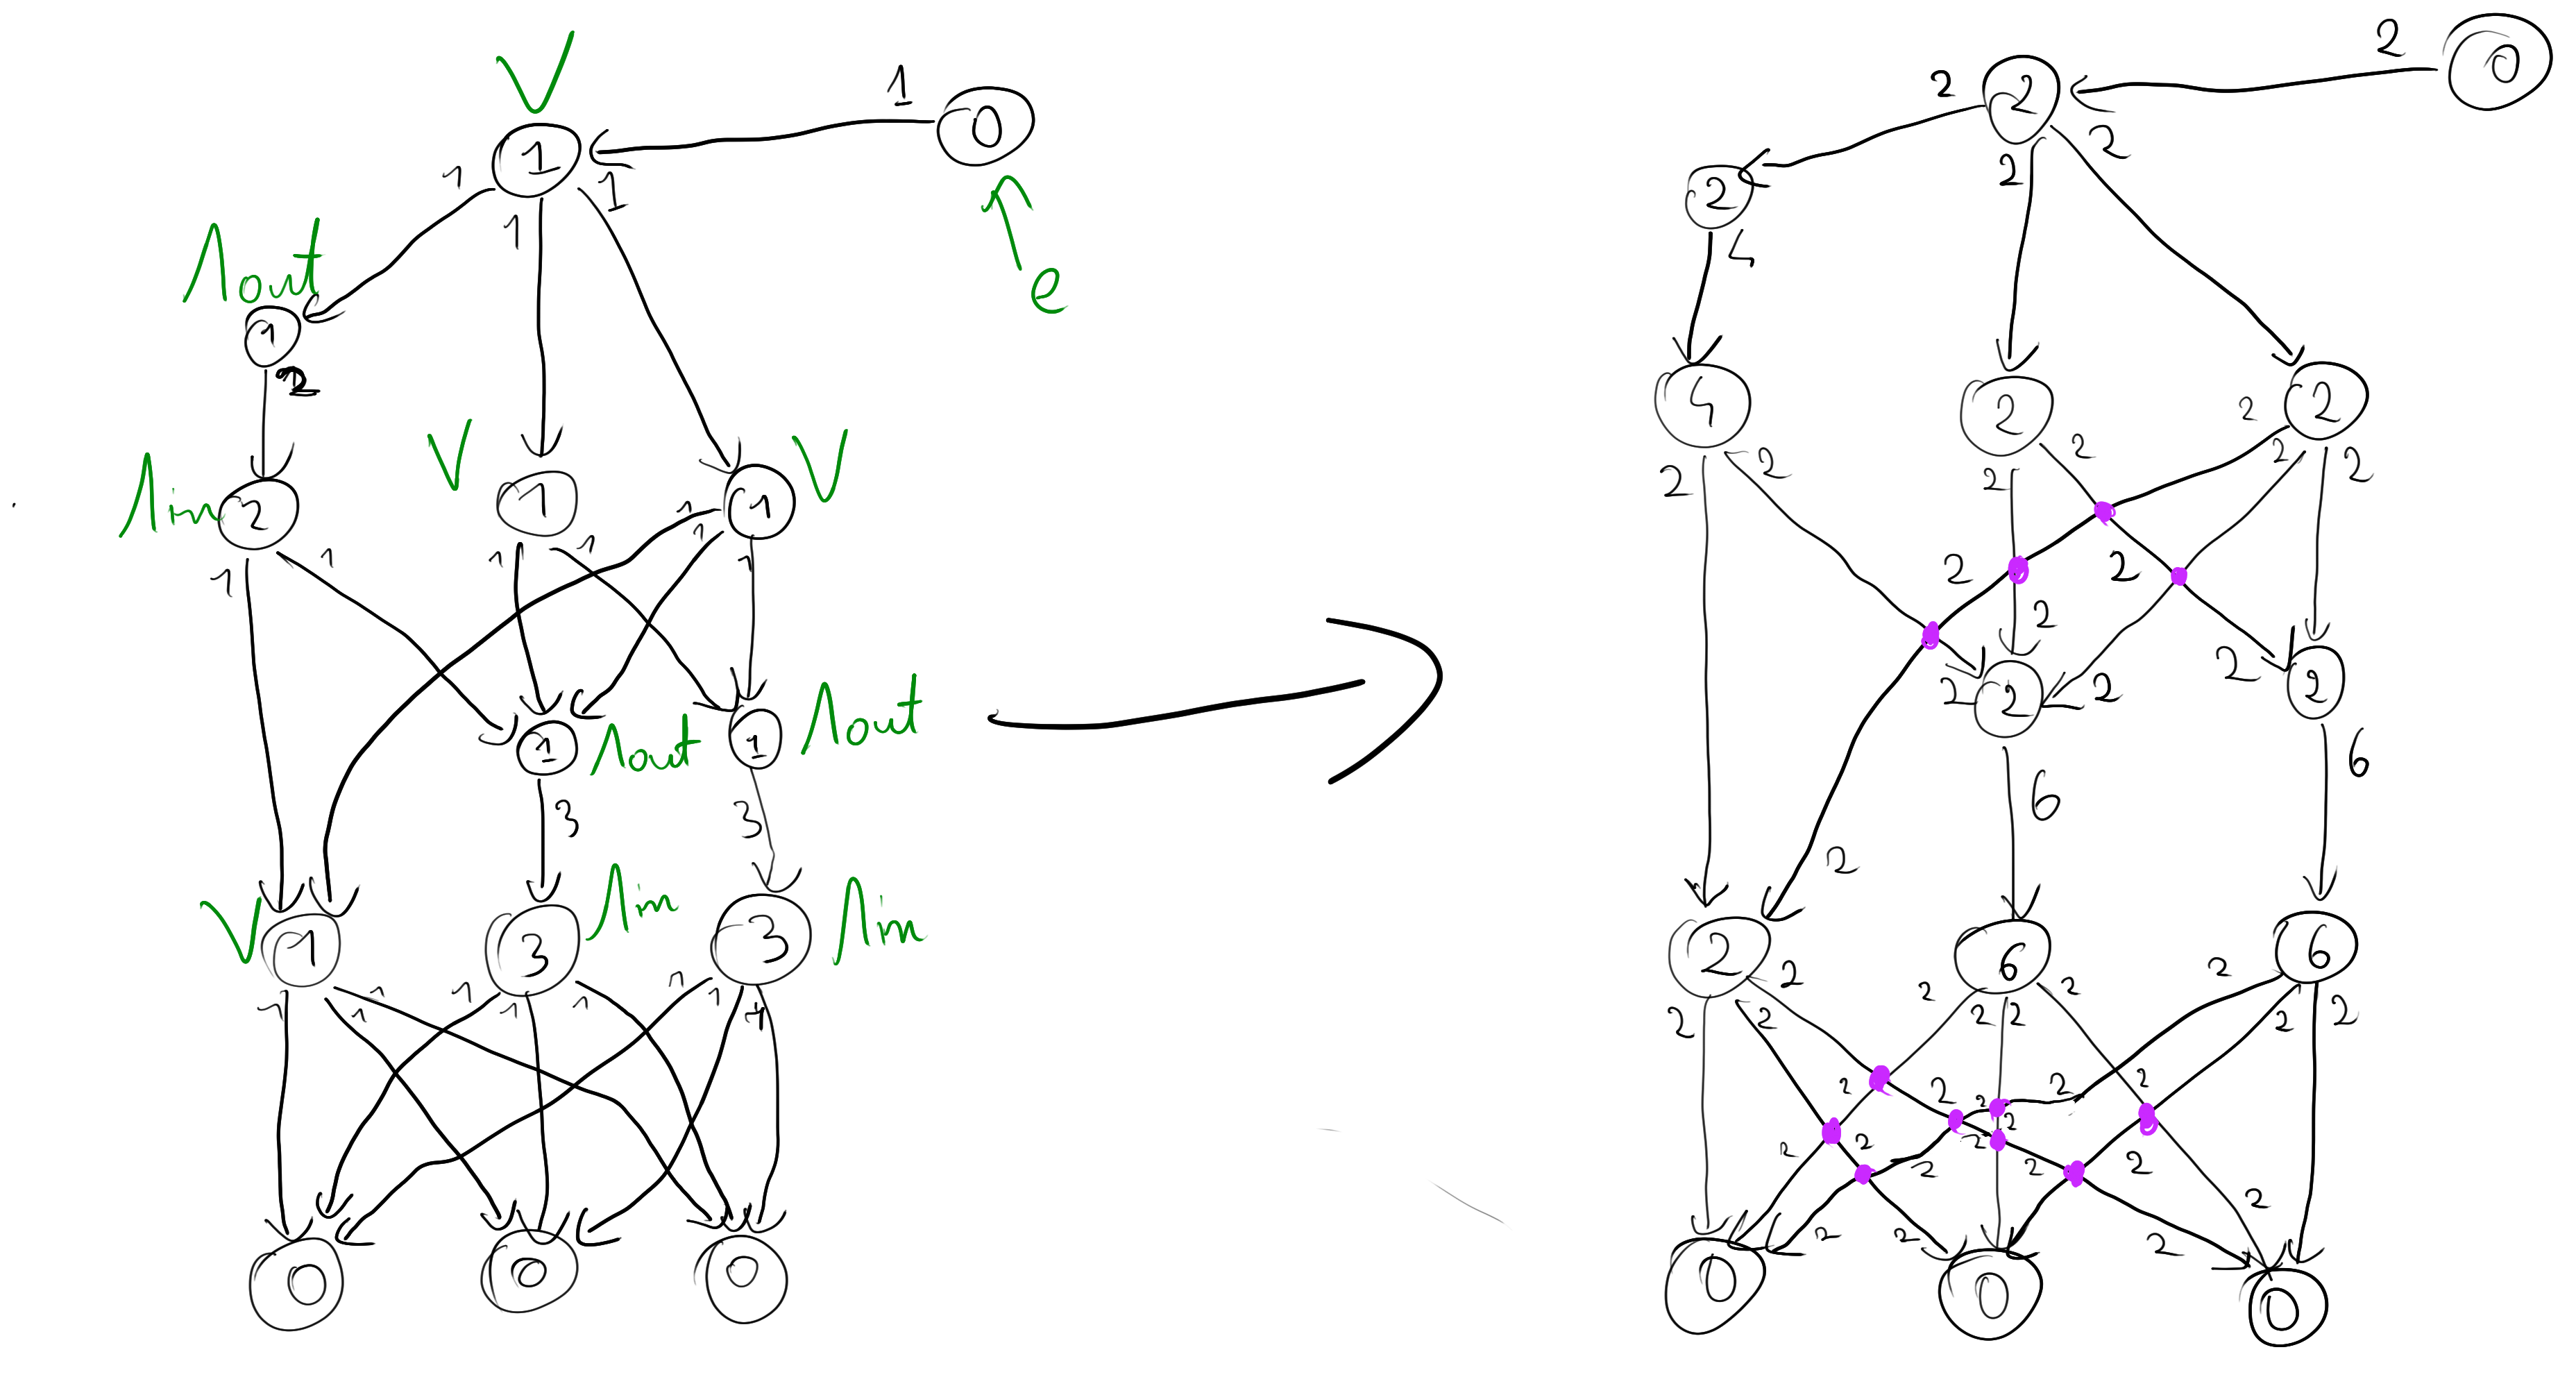 V
1
0
1
1
1
1
e
Λout
1
2
Λin
2
V
1
V
1
1
1
1
1
1
1
1
1
Λout
1
Λout
3
3
V
1
3
Λin
3
Λin
1
1
1
1
1
1
1
1
0
0
0
2
0
2
2
2
2
2
4
4
2
2
2
2
2
2
2
2
2
2
2
2
2
2
2
2
2
2
6
6
2
2
6
6
2
2
2
2
2
2
2
2
2
2
2
2
2
2
2
2
2
2
2
2
2
2
2
2
0
0
0